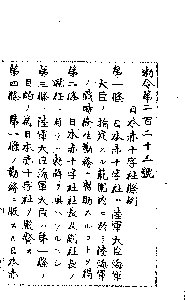 勅令第二百二十三號
日本赤十字社條例
第一條 日本赤十字社ハ陸軍大臣海軍
大臣ノ指定スル範圍内ニ於テ陸海軍
ノ戰時衛生勤務ヲ幇助スルコトヲ得
第二條 日本赤十字社社長及副社長ノ
就任ハ
第三條 陸軍大臣海軍大臣ハ第一條ノ
目的ノ爲日本赤十字社ヲ監督ス
第四條 第一條ノ勤務ニ服スル日本赤